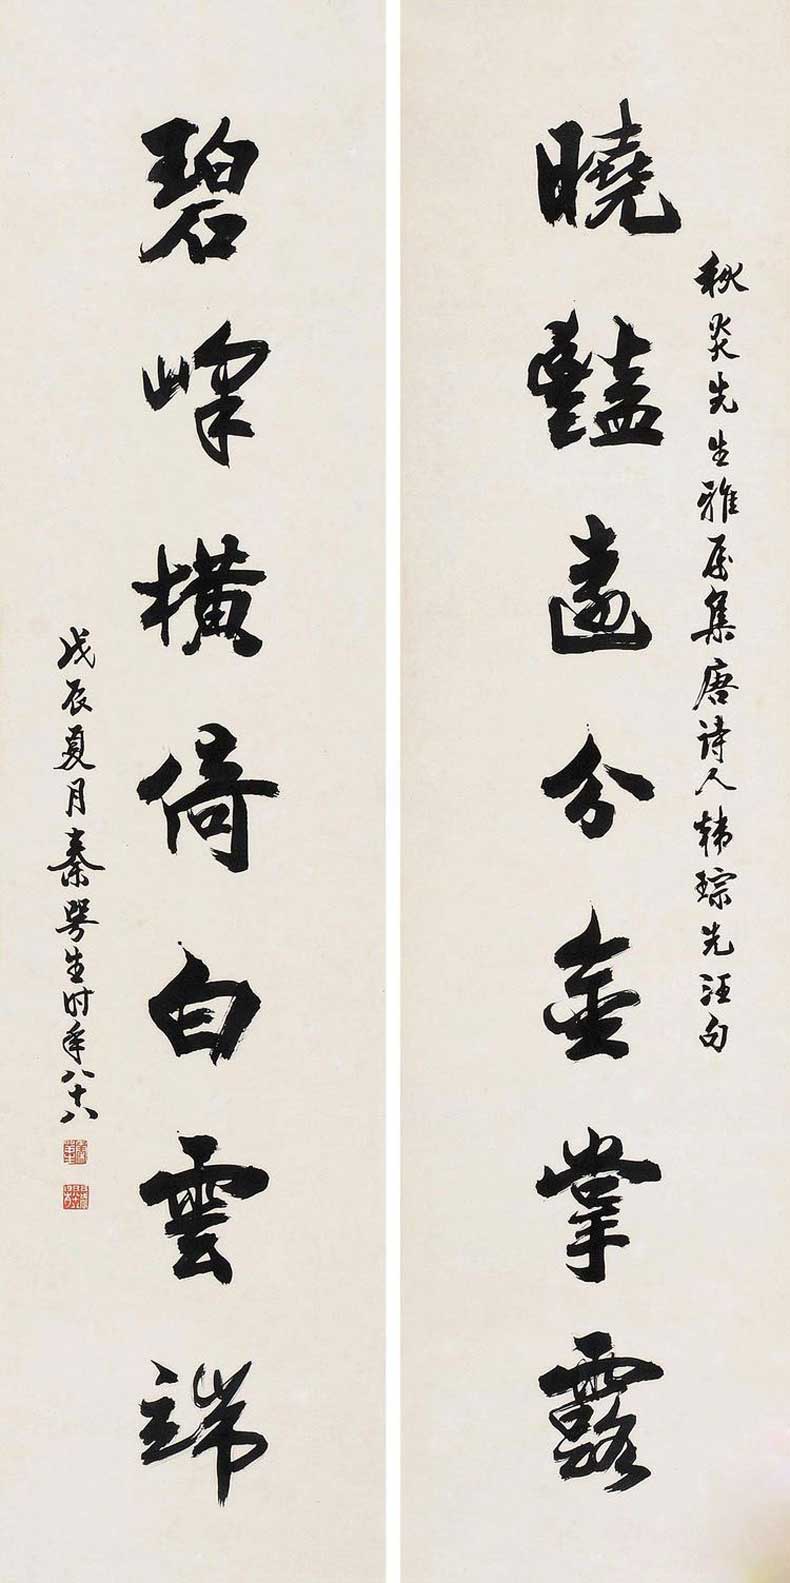 秋炎先生雅属集唐诗人韩琮先汪句
曉豔遠分金掌露
碧峰橫倚白雲端
戊辰夏月秦咢生时年八十八